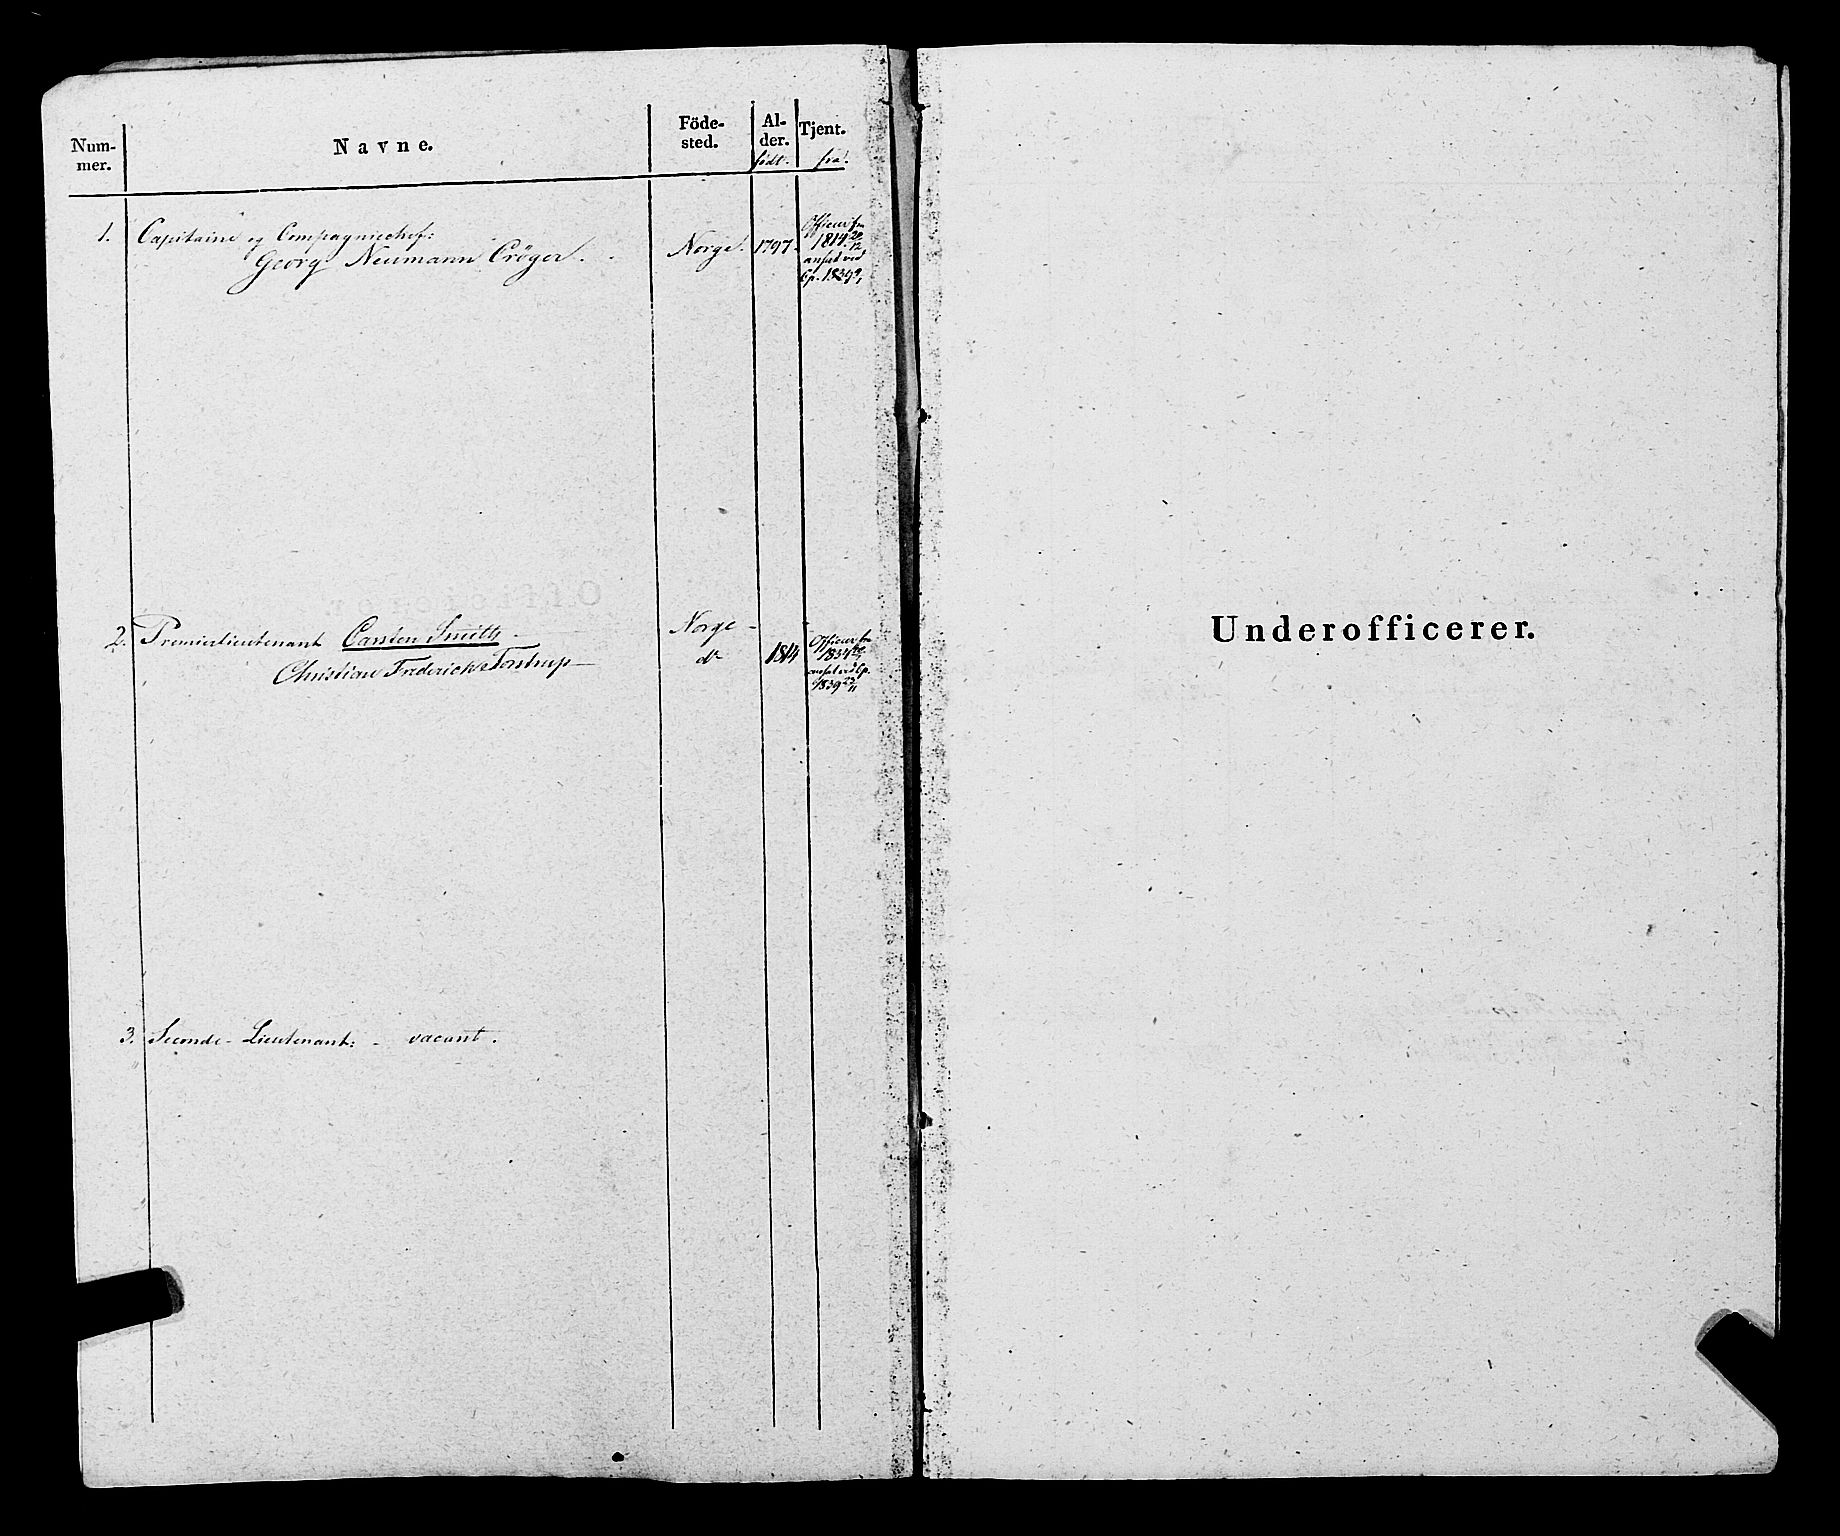 Num-
mer.
Navne.
Föde-
sted.
Al-
der.
födt.
Tjent.
fra.
1. Capitaine og Compagniechef:
Georg Neumann Cröger.
Norge. 1797.
Officier fra
1814 20/12
ansat ved
Cp.
2. Premierlieutenant Carsten Smith
Norge
Christian Frederick Torstrup
do 1814
Officier fra
ansat ved Cp.
1839 23/11
3. Seconde-Lieutenant: - vacant.
Underofficerer.